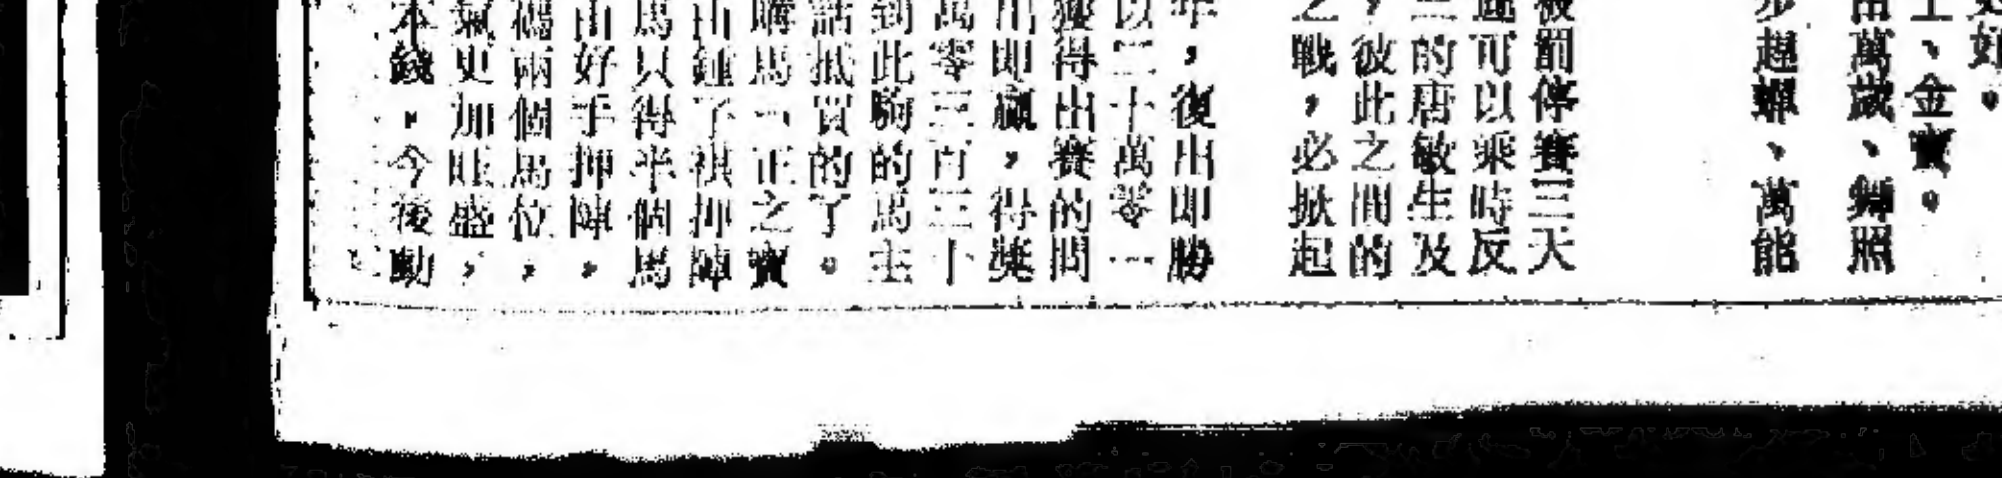 好。
士、金寶。
田萬歲、獅照
步趕蟬、萬能
被罰停賽三天
可以乘時反
三的唐敏生及
，彼此之間的
之戰，必掀起
年，復出即勝
以二十萬零一
獲得出賽的問
出即贏，得獎
萬零三百三十
到此駒的馬主
話抵買的了。
購馬「正之寶
由鍾了祺抑陣
馬只得半個馬
由好手抑陣，
碼兩個馬位，
氣更加旺盛，
本錢，今後動